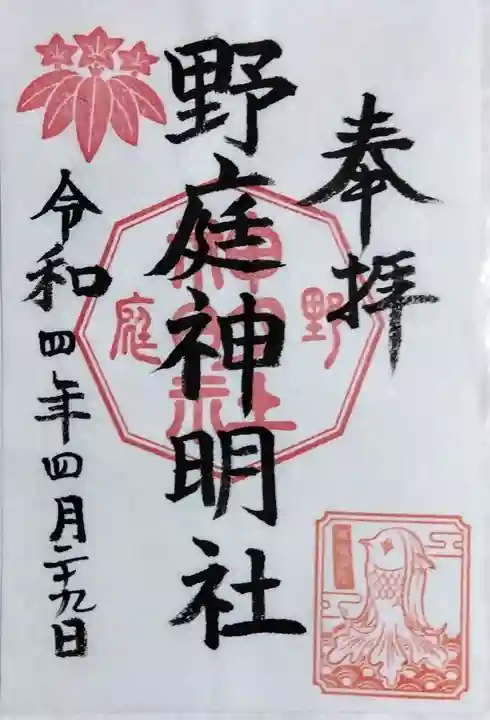 奉拝
野庭神明社
令和四年四月二十九日
野
庭